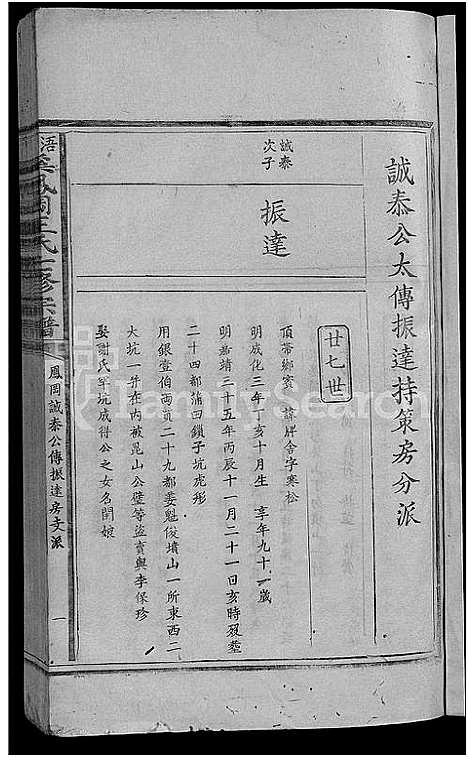 誠泰公太傳振達持策房分派
誠泰
次子
振達
廿七世
頂帶鄉賓 諱牌舍字寒松
明成化三年丁亥十月生 享年九十歲
明嘉靖三十五年丙辰十一月二十一日亥時歿葬
二十四都蒲田鎖子坑虎形
用銀壹伯兩買二十九都姜魁俊墳山一所東西二
大坑一并在內被昆山公璧等盜賣與李保珍
娶謝氏羊坑成得公之女名閏娘
鳳岡王氏 修宗譜
鳳岡誠泰公傳振達房支派
一
FamilySearch